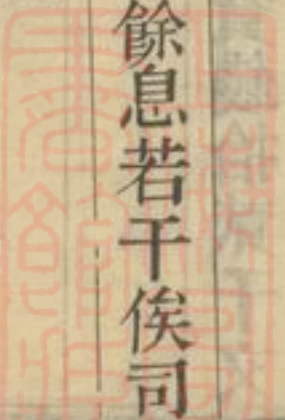 餘息若干俟司